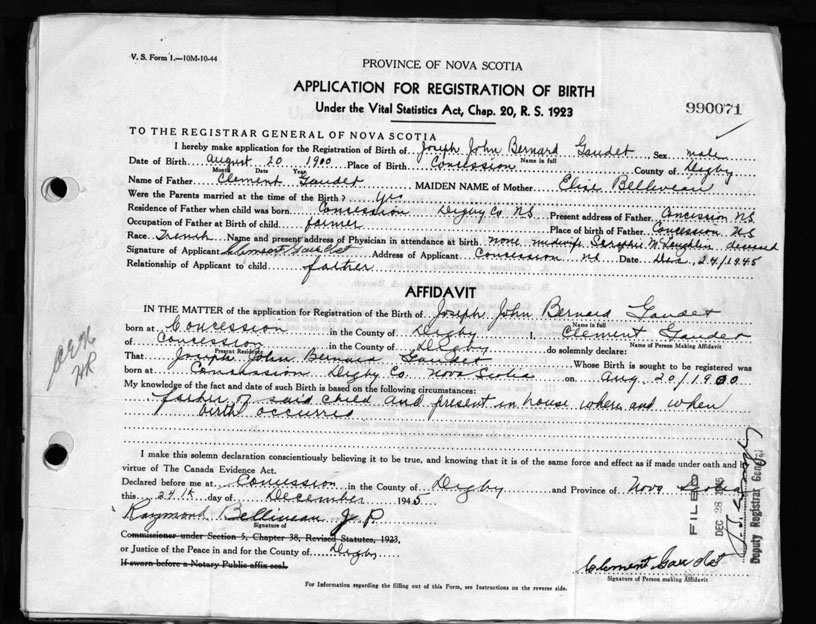 V. S. Form 1.—10M-10-44
PROVINCE OF NOVA SCOTIA
APPLICATION FOR REGISTRATION OF BIRTH
Under the Vital Statistics Act, Chap. 20, R. S. 1923
990071
TO THE REGISTRAR GENERAL OF NOVA SCOTIA
I hereby make application for the Registration of Birth of Joseph John Bernard Gaudet Sex male
Name in full
Date of Birth August 20 1900 Place of Birth Concession County of Digby
Month Date Year
Name of Father Clement Gaudet MAIDEN NAME of Mother Elise Belliveau
Were the Parents married at the time of the Birth? yes
Residence of Father when child was born Concession Digby Co. NS Present address of Father Concession NS
Occupation of Father at Birth of child farmer Place of birth of Father Concession NS
Race French Name and present address of Physician in attendance at birth none midwife McLaughlin deceased
Signature of Applicant Clement Gaudet Address of Applicant Concession NS Date Dec. 24/1945
Relationship of Applicant to child father
AFFIDAVIT
IN THE MATTER of the application for Registration of the Birth of Joseph John Bernard Gaudet
Name in full
born at Concession in the County of Digby I, Clement Gaudet
Name of Person Making Affidavit
of Concession in the County of Digby do solemnly declare:
Present Residence
That Joseph John Bernard Gaudet Whose Birth is sought to be registered was
born at Concession Digby Co. Nova Scotia on Aug. 20/1900
My knowledge of the fact and date of such Birth is based on the following circumstances:
father of said child and present in house where and when
birth occurred
I make this solemn declaration conscientiously believing it to be true, and knowing that it is of the same force and effect as if made under oath and by
virtue of The Canada Evidence Act.
Declared before me at Concession in the County of Digby and Province of Nova Scotia
this 24th day of December 1945
Raymond Belliveau J P
Signature of
Commissioner under Section 5, Chapter 38, Revised Statutes, 1923,
or Justice of the Peace in and for the County of Digby
If sworn before a Notary Public affix seal.
Clement Gaudet
Signature of Person making Affidavit
For Information regarding the filling out of this Form, see Instructions on the reverse side.
FILED
DEC 28 1945
Deputy Registrar General